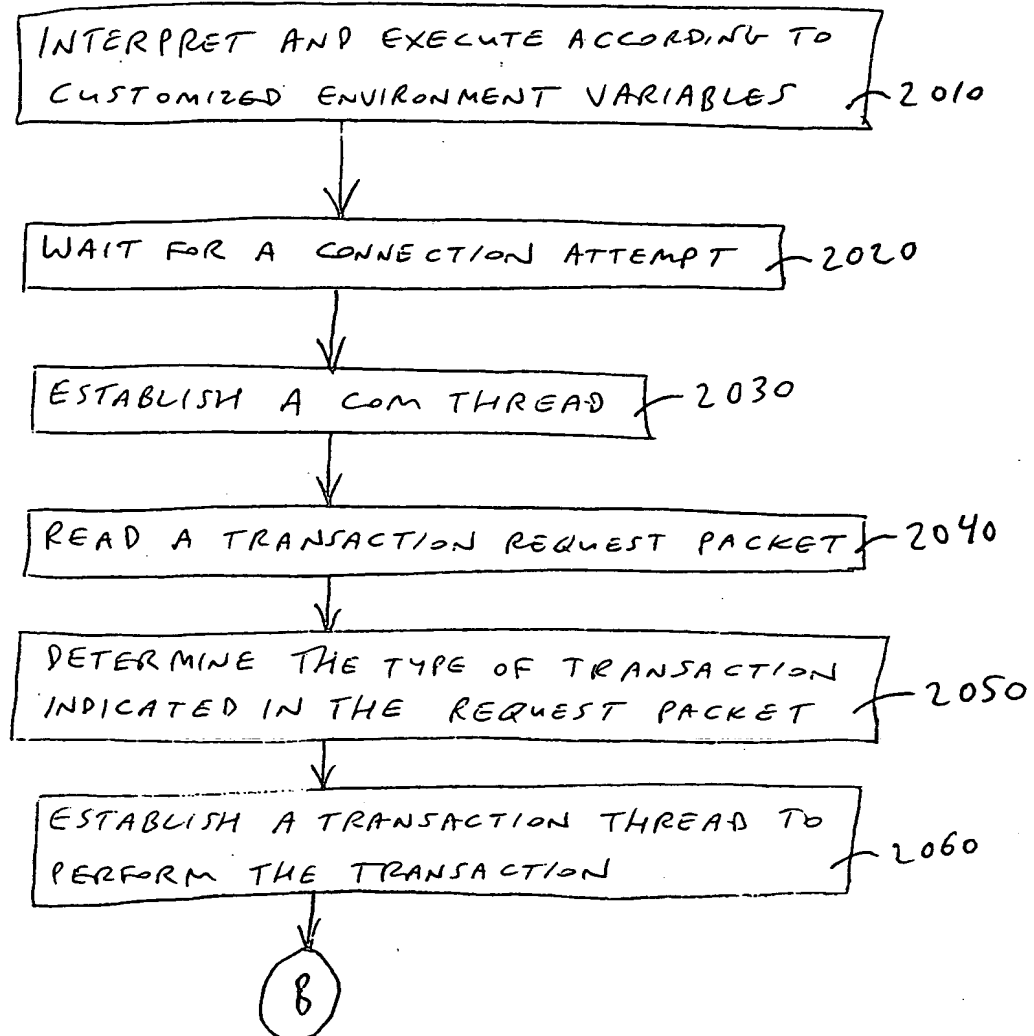 INTERPRET AND EXECUTE ACCORDING TO
CUSTOMIZED ENVIRONMENT VARIABLES 2010
WAIT FOR A CONNECTION ATTEMPT 2020
ESTABLISH A COM THREAD 2030
READ A TRANSACTION REQUEST PACKET 2040
DETERMINE THE TYPE OF TRANSACTION
INDICATED IN THE REQUEST PACKET 2050
ESTABLISH A TRANSACTION THREAD TO
PERFORM THE TRANSACTION 2060
B